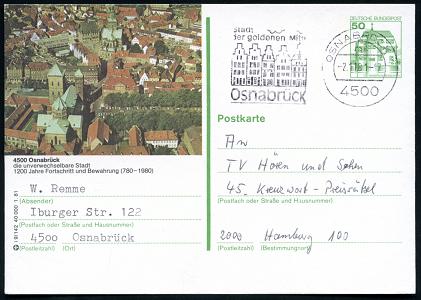 Stadt
der goldenen Mitte
Osnabrück
OSNABRÜCK
4500
50
DEUTSCHE BUNDESPOST
Postkarte
4500 Osnabrück
die unverwechselbare Stadt
1200 Jahre Fortschritt und Bewahrung (780-1980)
W. Remme
(Absender)
Iburger Str. 122
(Postfach oder Straße und Hausnummer)
4500 Osnabrück
(Postleitzahl) (Ort)
An
TV Hören und Sehen
45. Kreuzwort-Preisrätsel
(Postfach oder Straße und Hausnummer)
2000 Hamburg 100
(Postleitzahl) (Bestimmungsort)